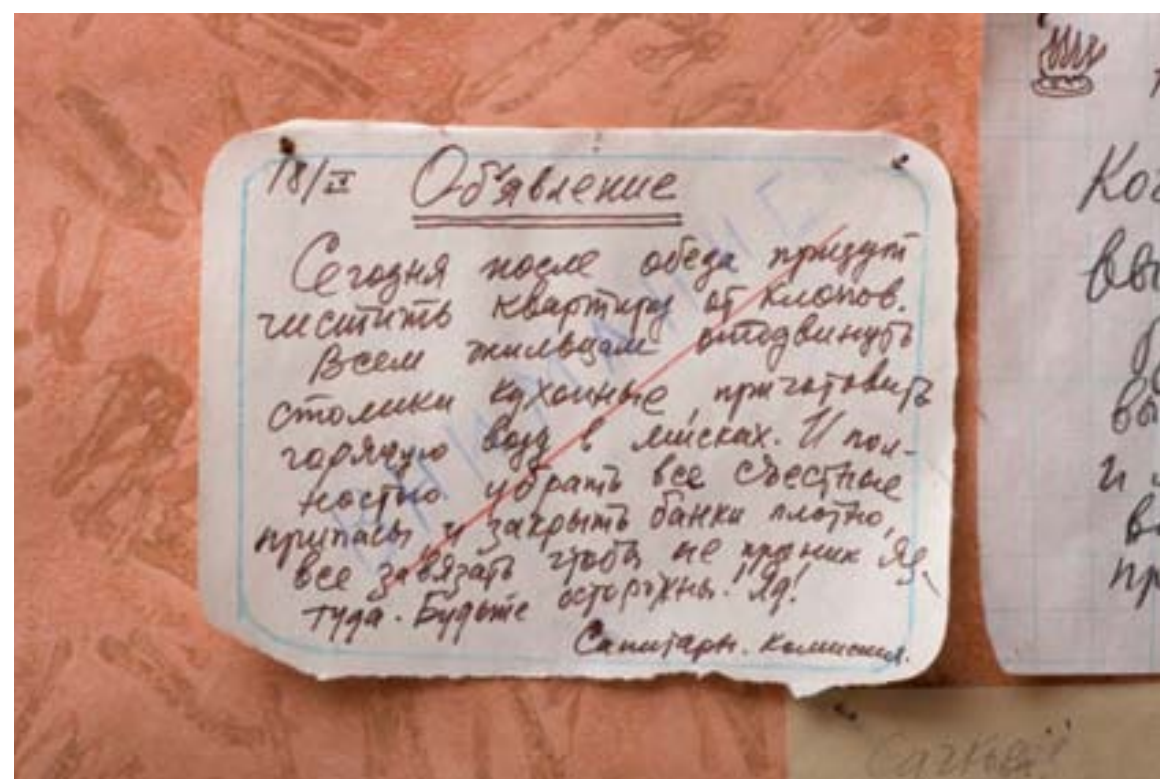 18/IV Объявление
Сегодня после обеда придут
чистить квартиру от клопов.
Всем жильцам отодвинуть
столики кухонные, приготовить
горячую воду в мисках. И пол-
ностью убрать все съестные
припасы и закрыть банки плотно,
все завязать чтобы не проник яд
туда. Будьте осторожны! Яд!
Санитарн. комиссия.
ВНИМАНИЕ
Ког
вы
и
пр